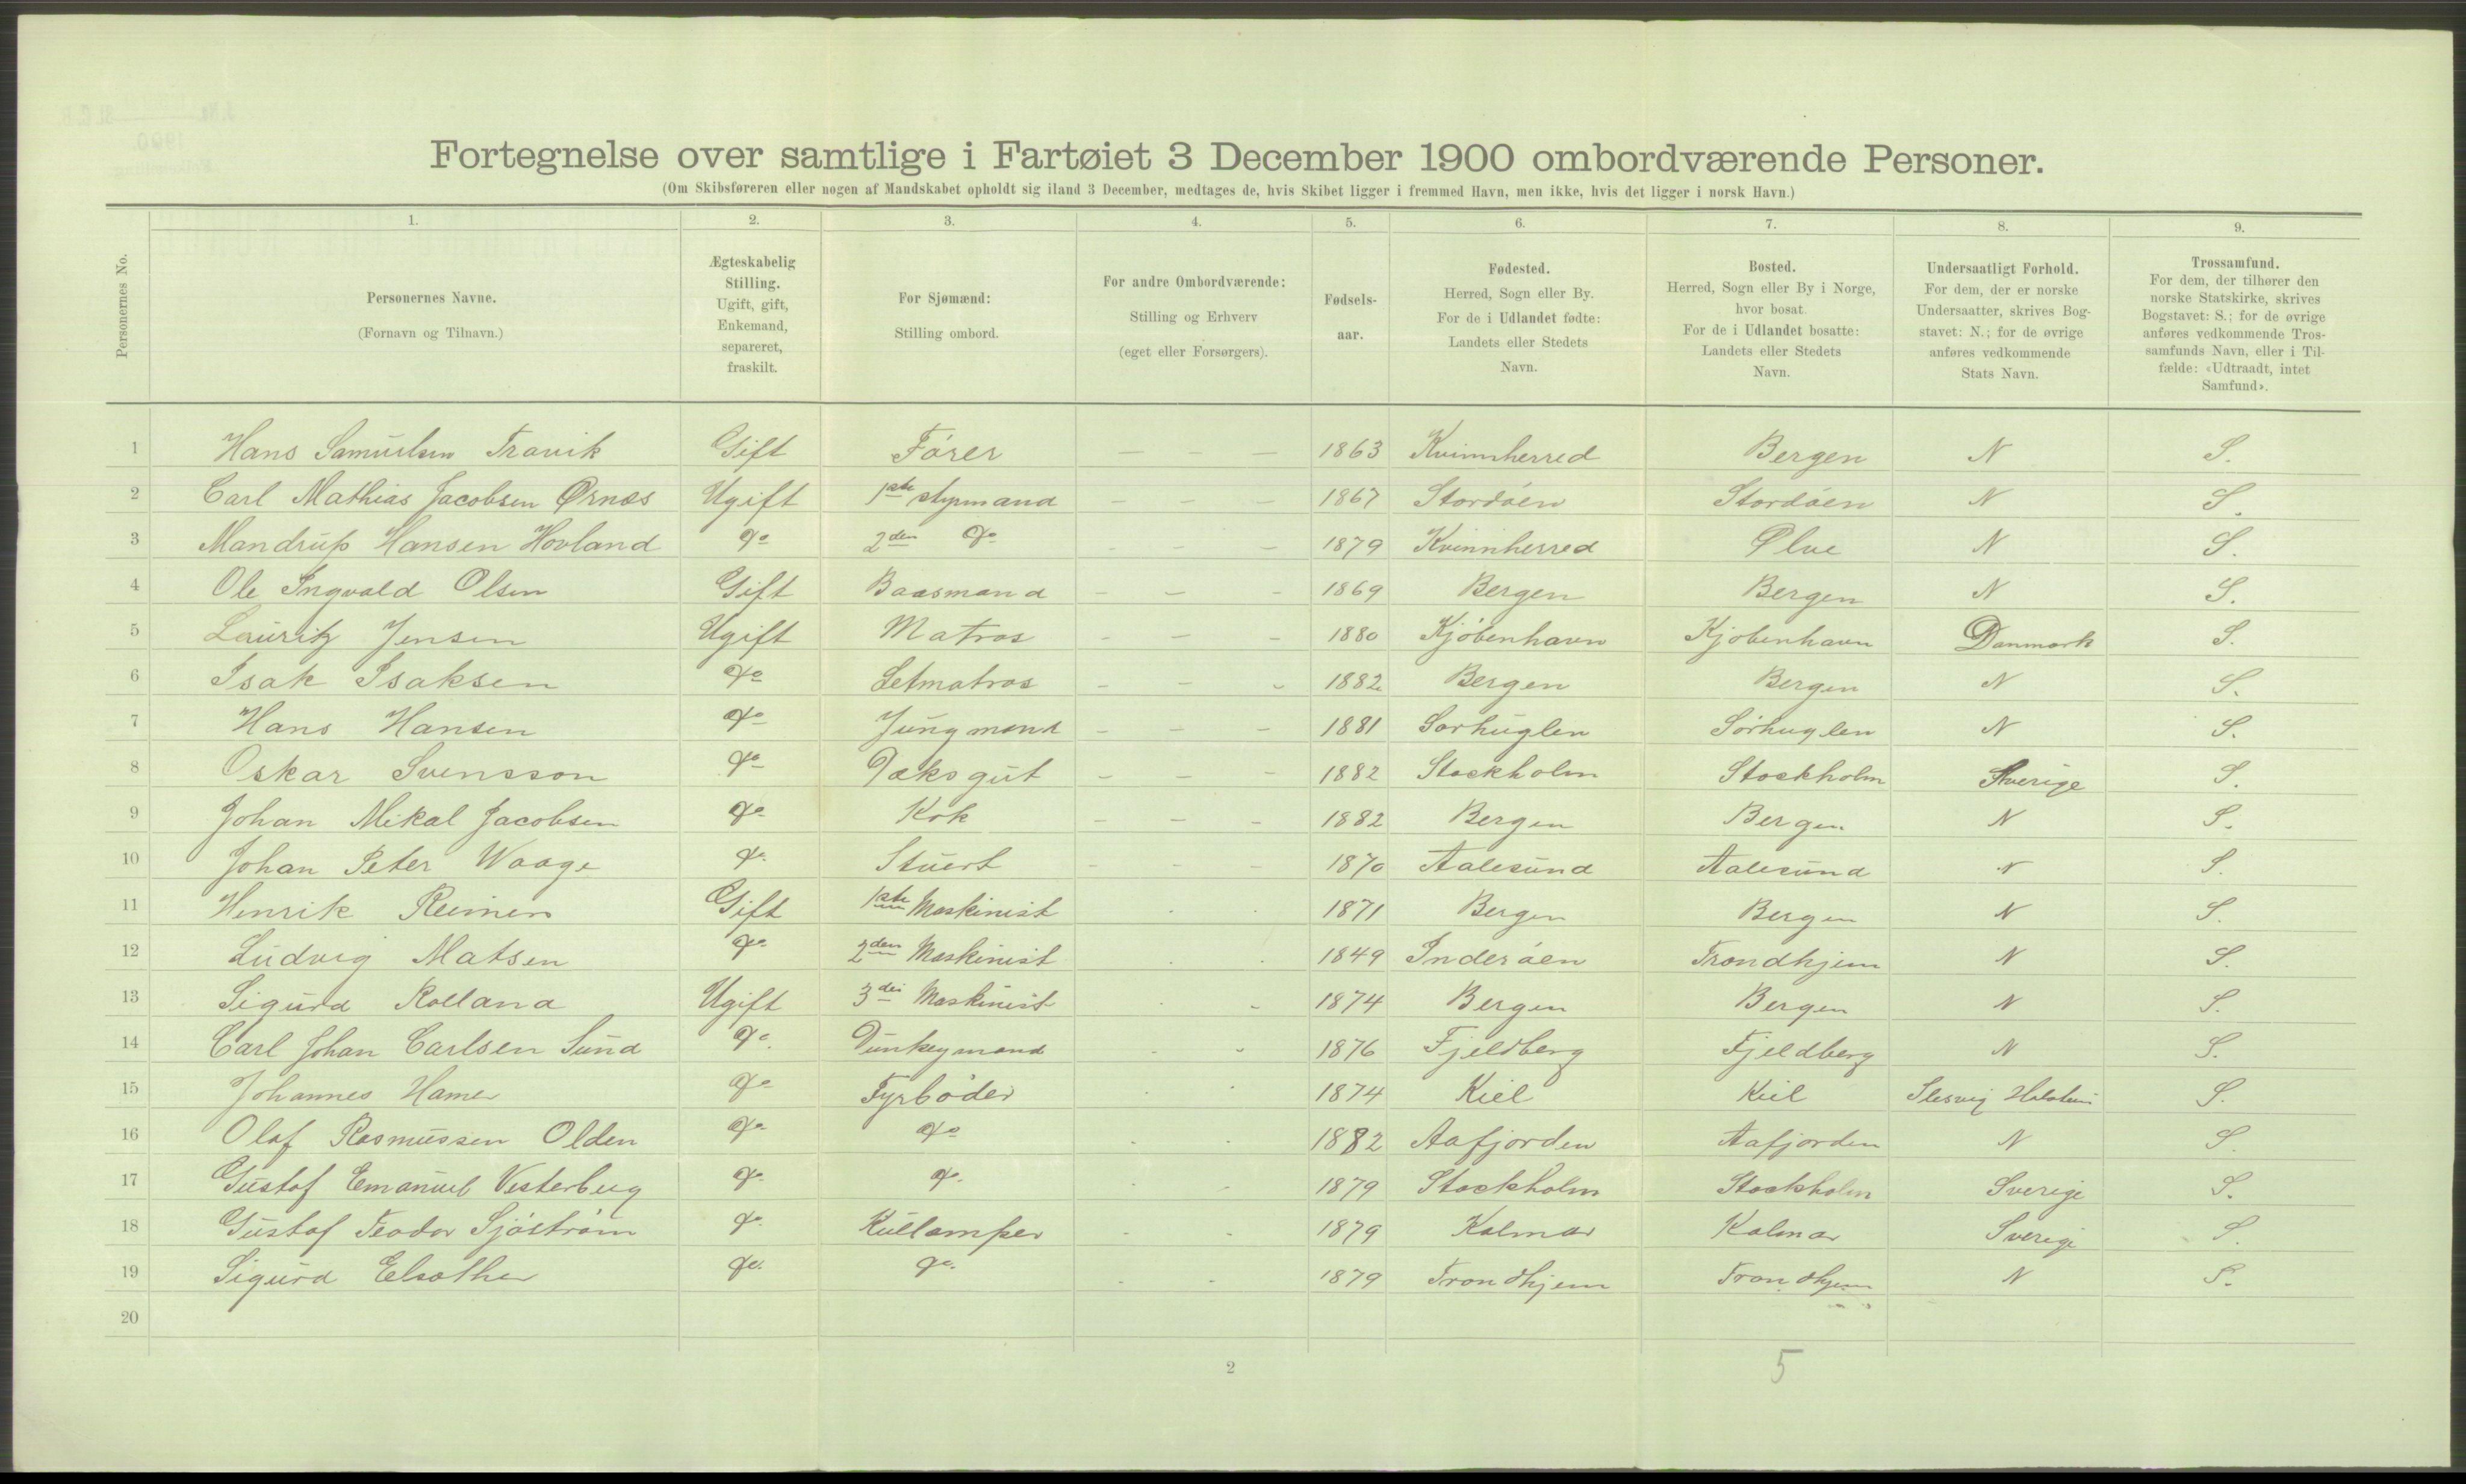 Fortegnelse over samtlige i Fartøiet 3 December 1900 ombordværende Personer.
(Om Skibsføreren eller nogen af Mandskabet opholdt sig iland 3 December, medtages de, hvis Skibet ligger i fremmed Havn, men ikke, hvis det ligger i norsk Havn.)
Personernes No.
1. 2. 3. 4. 5. 6. 7. 8. 9.
Personernes Navne.
(Fornavn og Tilnavn.)
Ægteskabelig
Stilling.
Ugift, gift,
Enkemand,
separeret,
fraskilt.
For Sjømænd:
Stilling ombord.
For andre Ombordværende:
Stilling og Erhverv
(eget eller Forsørgers).
Fødsels-
aar.
Fødested.
Herred, Sogn eller By.
For de i Udlandet fødte:
Landets eller Stedets
Navn.
Bosted.
Herred, Sogn eller By i Norge,
hvor bosat.
For de i Udlandet bosatte:
Landets eller Stedets
Navn.
Undersaatligt Forhold.
For dem, der er norske
Undersaatter, skrives Bog-
stavet: N.; for de øvrige
anføres vedkommende
Stats Navn.
Trossamfund.
For dem, der tilhører den
norske Statskirke, skrives
Bogstavet: S.; for de øvrige
anføres vedkommende Tros-
samfunds Navn, eller i Til-
fælde: «Udtraadt, intet
Samfund».
1 Hans Samuelsen Travik Gift Fører — — — 1863 Kvinnherred Bergen N S.
2 Carl Mathias Jacobsen Ørnæs Ugift 1ste styrmand — — — 1867 Stordöen Stordöen N S.
3 Mandrup Hansen Hovland Do 2den Do - - - 1879 Kvinnherred Ølve N S.
4 Ole Ingvald Olsen Gift Baasmand - - - 1869 Bergen Bergen N S.
5 Lauritz Jensen Ugift Matros - - - 1880 Kjöbenhavn Kjobenhavn Danmark S.
6 Isak Isaksen Do Letmatros - - - 1882 Bergen Bergen N S.
7 Hans Hansen Do Jungmand - - - 1881 Sørhuglen Sørhuglen N S.
8 Oskar Svensson Do Dæksgut - - - 1882 Stockholm Stockholm Sverige S.
9 Johan Mikal Jacobsen Do Kok - - - 1882 Bergen Bergen N S.
10 Johan Peter Waage Do Stuert - - - 1870 Aalesund Aalesund N S.
11 Henrik Reimers Gift 1ste Maskinist 1871 Bergen Bergen N S.
12 Ludvig Matsen Do 2den Maskinist 1849 Inderöen Trondhjem N S.
13 Sigurd Rolland Ugift 3die Maskinist 1874 Bergen Bergen N S.
14 Carl Johan Carlsen Sund Do. Dunkeymand 1876 Fjeldberg Fjeldberg N S.
15 Johannes Hamer Do Fyrbøder 1874 Kiel Kiel Slesvig Holstein S.
16 Olaf Rasmussen Olden Do Do 1882 Aafjorden Aafjorden N S.
17 Gustof Emanuel Vesterberg Do Do 1879 Stockholm Stockholm Sverige S.
18 Gustaf Teodor Sjöström Do Kullemper 1879 Kalmar Kalmar Sverige S.
19 Sigurd Do. Do. 1879 Trondhjem Trondhjem N S.
20
2
5